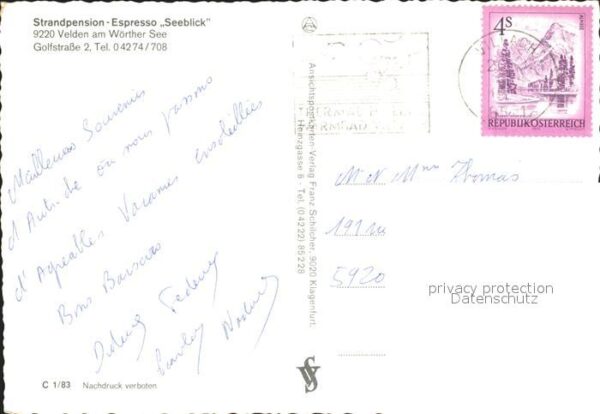 Strandpension - Espresso „Seeblick"
9220 Velden am Wörther See
Golfstraße 2, Tel. 0 42 74 / 708
Meilleurs Souvenirs
d'Autriche où nous passons
d'Agréables Vacances ensoleillées
Bons Baisers
Nadine
C 1/83 Nachdruck verboten
Ansichtspostkarten-Verlag Franz Schilcher, 9020 Klagenfurt,
Heinzgasse 6 - Tel. (0 42 22) 85 2 28
4S
REPUBLIK ÖSTERREICH
VILLACH
M et Mme Thomas
5920
privacy protection
Datenschutz